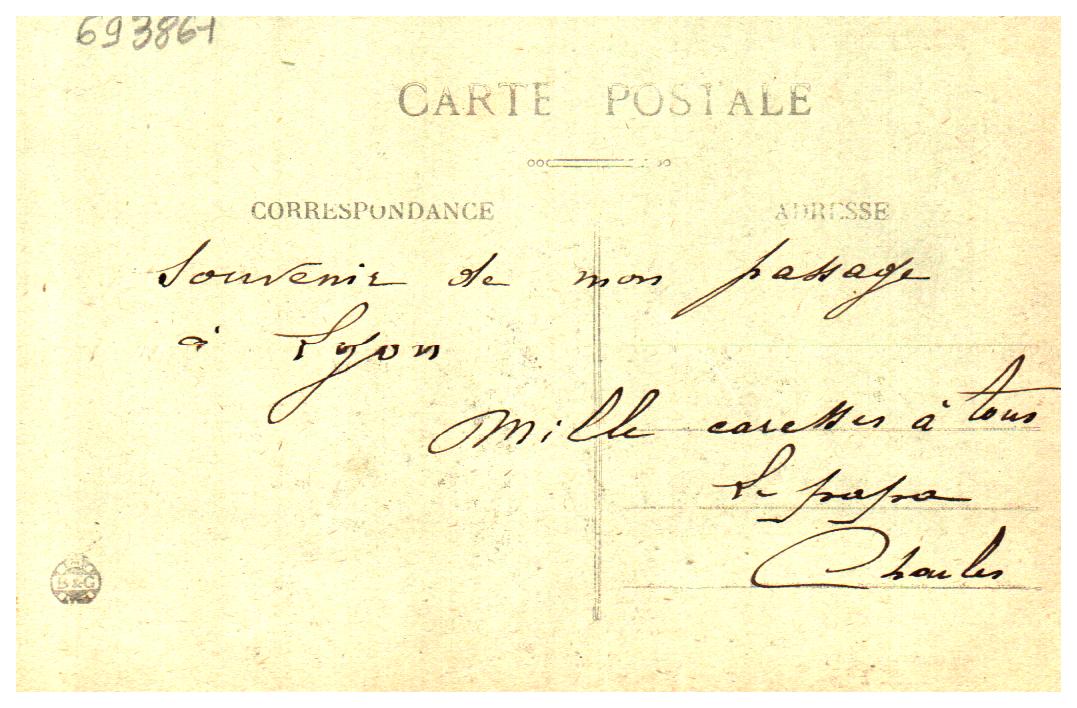 693861
CARTE POSTALE
CORRESPONDANCE
ADRESSE
Souvenir de mon passage
à Lyon
Mille caresses à tous
Le papa
Charles
B & G